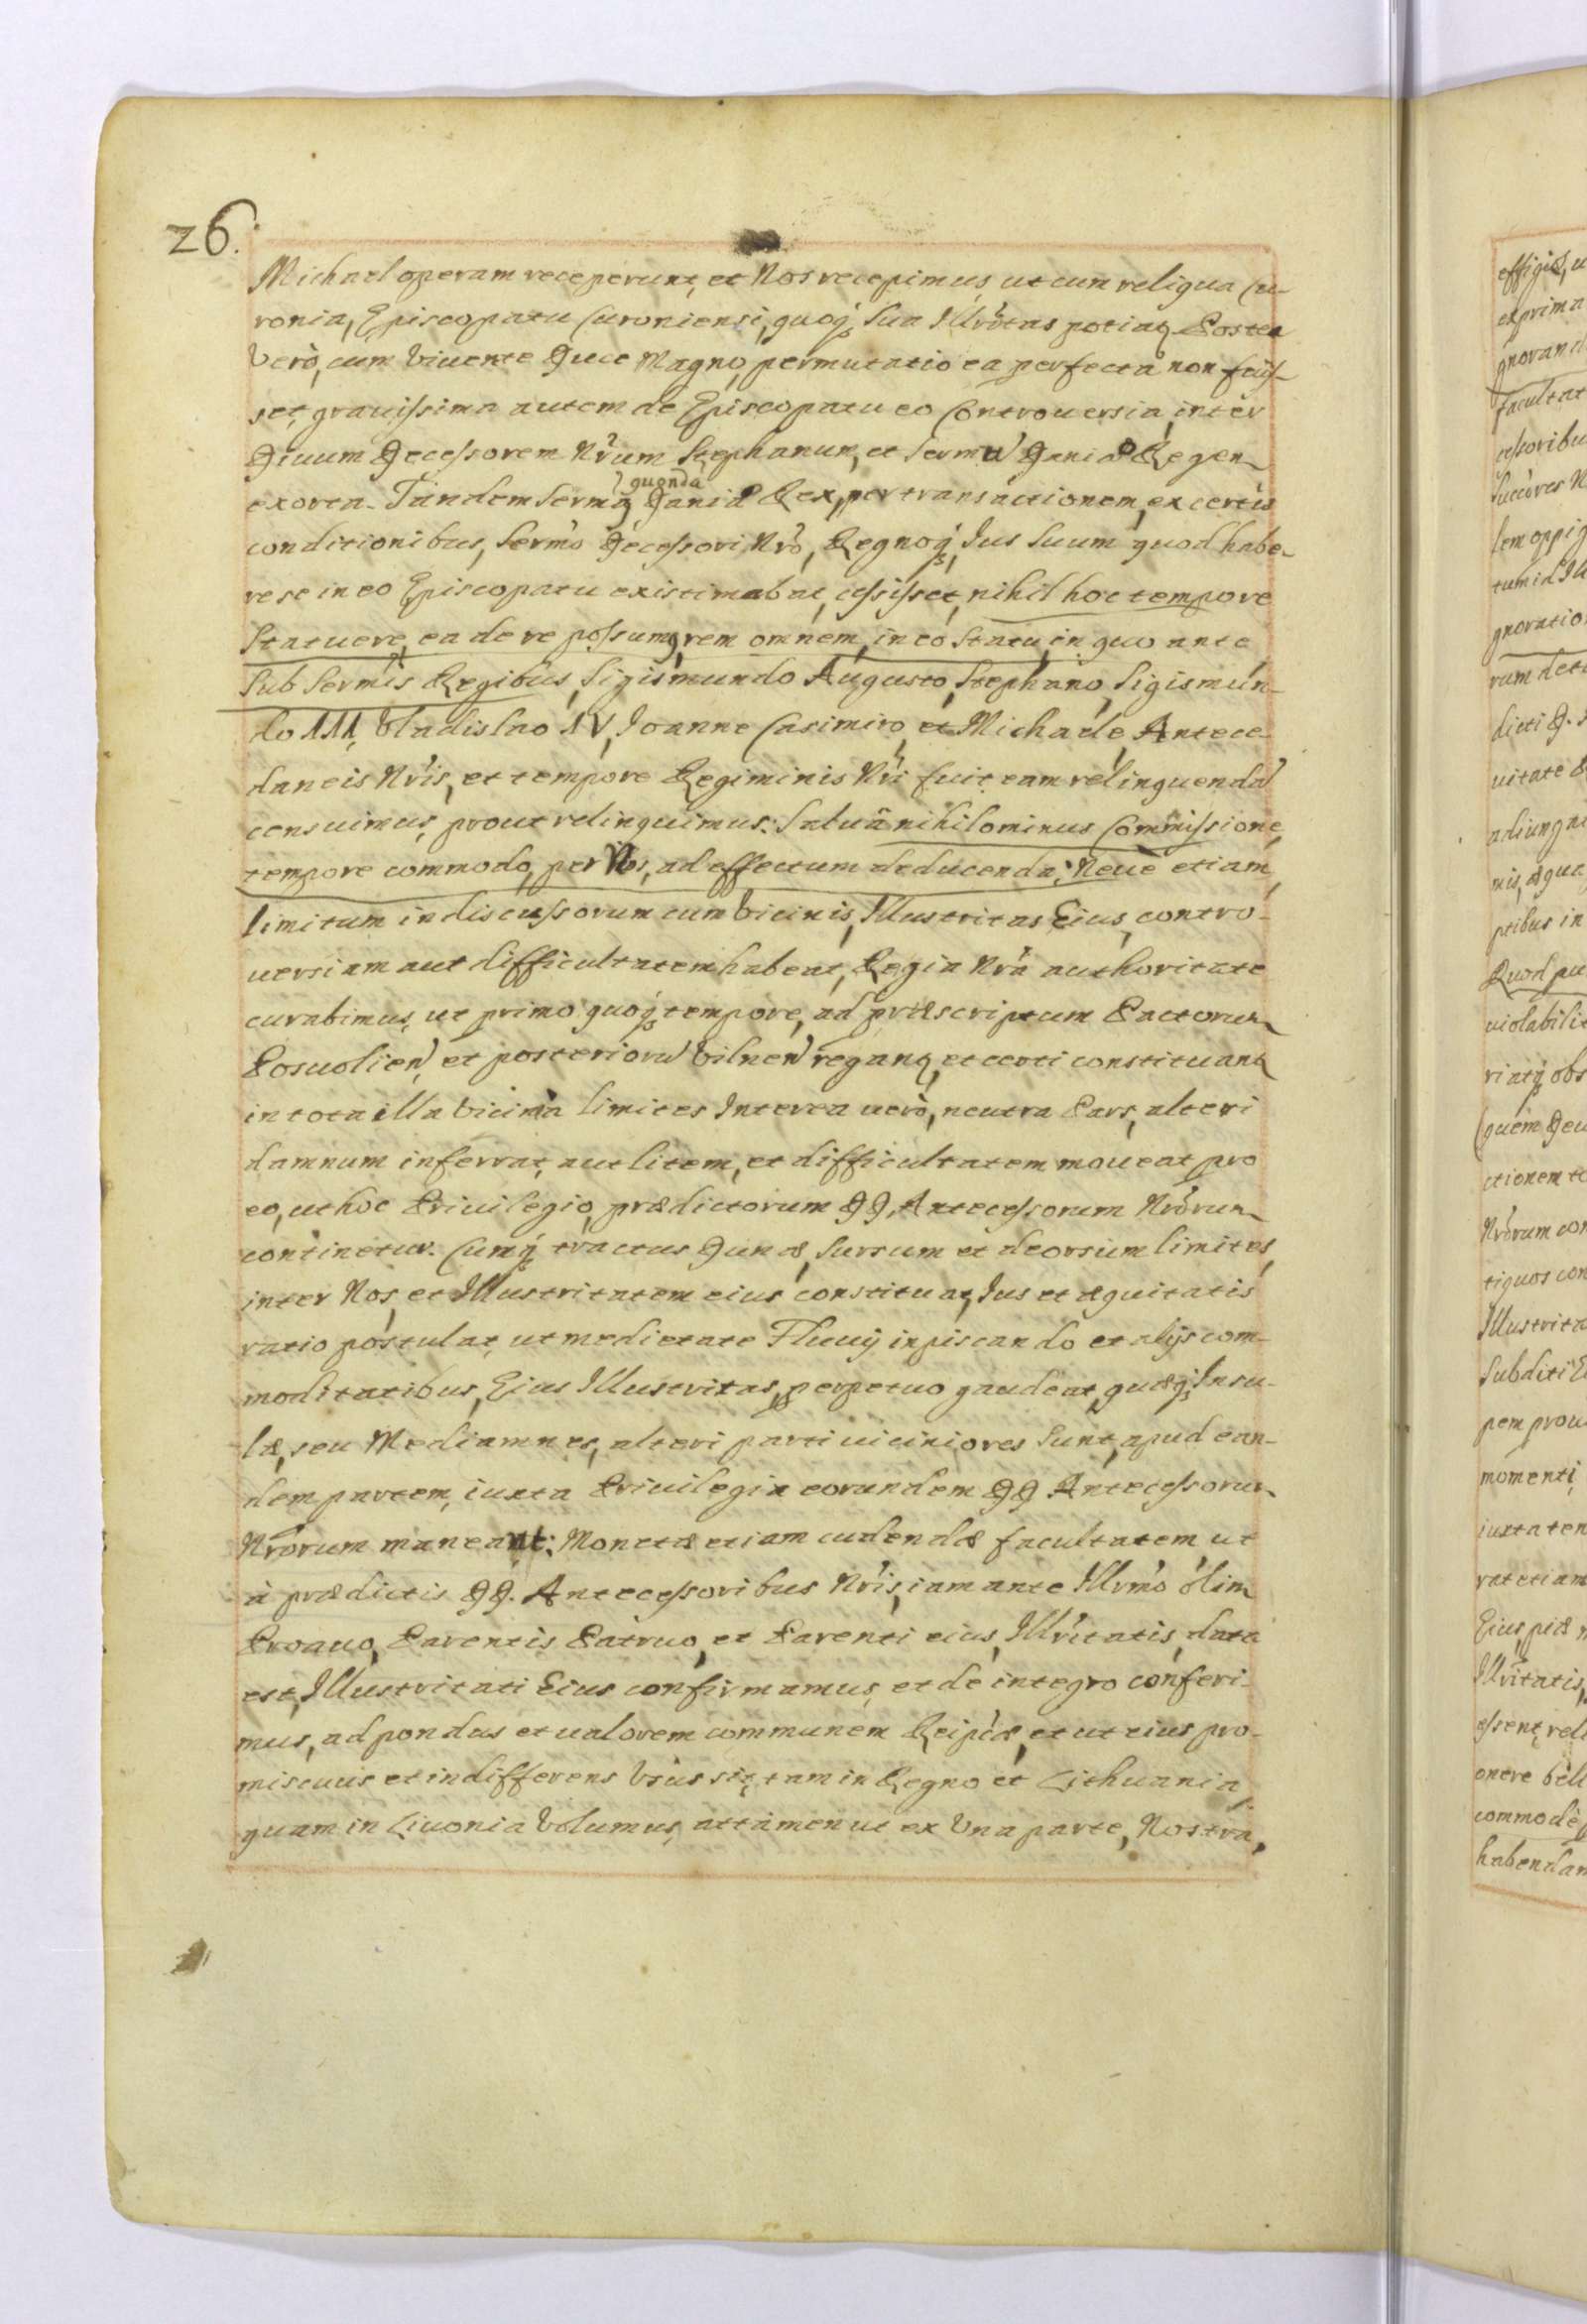 26.
Michael operam receperunt, et Nos recepimus, ut cum reliqua Cu-
ronia, Episcopatu Curoniensi, quoq́ Sua Illr̃tas potiaꝶ. Postea
Verò, cum Viuente Duce Magno, permutatio ea perfecta non fuis-
set, grauissima autem de Episcopatu eo Controuersia, inter
Diuum Decessorem Nr̃um Stephanum, et Serm̃ Daniæ Regem
quonda
exorta. Tandem Serm̃9 Daniæ Rex, per transactionem, ex certis
conditionibus, Serm̃o Decessori Nrõ, Regnoq́, Ius Suum quod habe-
re se in eo Episcopatu existimabat, cessisset, nihil hoc tempore
Statuere, ea de re possum9, rem omnem, in eo Statu, in quo ante
Sub Serm̃is Regibus, Sigismundo Augusto, Stephano, Sigismun-
do III, Vladislao IV, Joanne Casimiro, et Michaele, Antece-
daneis Nr̃is, et tempore Regiminis Nr̃i fuit, eam relinquendã
censuimus, prout relinquimus: Saluâ nihilominus Commissione,
tempore commodo, per Nos, ad effectum deducenda; Neuè etiam,
limitum indiscussorum cum Vicinis, Illustritas Eius, contro-
uersiam aut difficultatem habeat, Regia Nr̃a authoritate
curabimus, ut primo quoq́ tempore, ad præscriptum Pactorum
Posuolien̄, et posteriorū Vilnen̄ reganꝶ, et certi constituanꝶ
in tota illa Vicinia limites Interea uerò, neutra Pars, alteri
damnum inferrat, aut litem, et difficultatem moueat pro
eo, ut hoc Priuilegio, prædictorum DD. Antecessorum Nrõrum
continetur. Cumq́ tractus Dunæ, Sursum et deorsum limites,
inter Nos, et Illustritatem eius constituat, Ius et æquitatis
ratio postulat, ut medietate Fluuij in piscando et alijs com-
moditatibus, Eius Illustritas, perpetuo gaudeat, quæq́ Insu-
læ, seu Mediamnes, alteri parti uiciniores Sunt, apud ean-
dem partem, iuxta Priuilegia eorundem DD. Antecessorum
Nrõrum maneant: Monetæ etiam cudendæ facultatem ut
à prædictis DD. Antecessoribus Nr̃is, iam ante Illrm̃o olim
Proauo, Parentis Patruo, et Parenti eius, Illr̃itatis, data
est, Illustritati Eius confirmamus, et de integro conferi-
mus, ad pondus et ualorem communem Reipčæ, et ut eius pro-
miscuus et indifferens Vsus sit, tam in Regno et Lithuania,
quam in Liuonia Volumus, attamen ut ex Vna parte, Nostra,